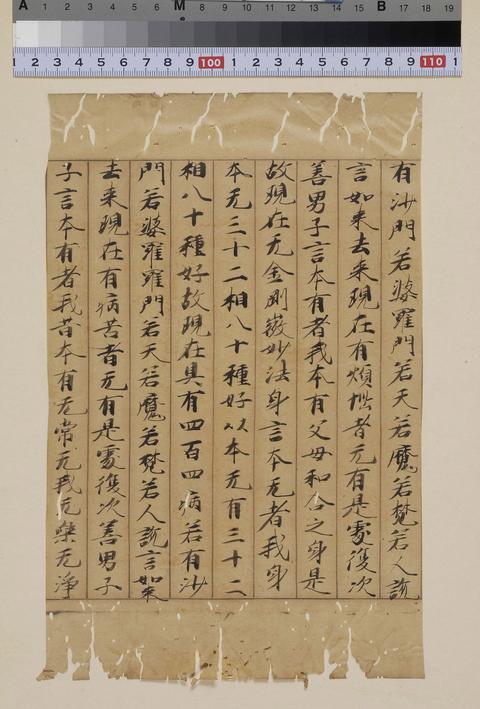 A 1 2 3 4 5 6 M 8 9 10 11 12 13 14 15 B 17 18 19
2 3 4 5 6 7 8 9 100 1 2 3 4 5 6 7 8 9 110 1
有沙門若婆羅門若天若魔若梵若人說
言如来去来現在有煩惱者无有是處復次
善男子言本有者我本有父母和合之身是
故現在无金剛微妙法身言本无者我身
本无三十二相八十種好以本无有三十二
相八十種好故現在具有四百四病若有沙
門若婆羅羅門若天若魔若梵若人說言如来
去来現在有病苦者无有是處復次善男子
子言本有者我昔本有无常无我无樂无淨